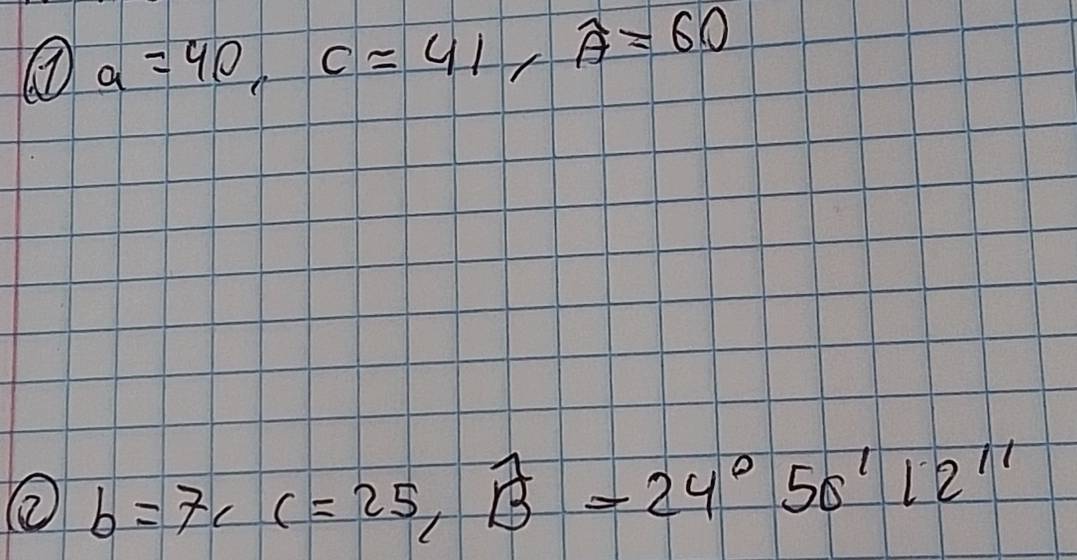 ① a = 40, c = 41, Â = 60
② b = 7, c = 25, B̂ = 24° 56' 12''